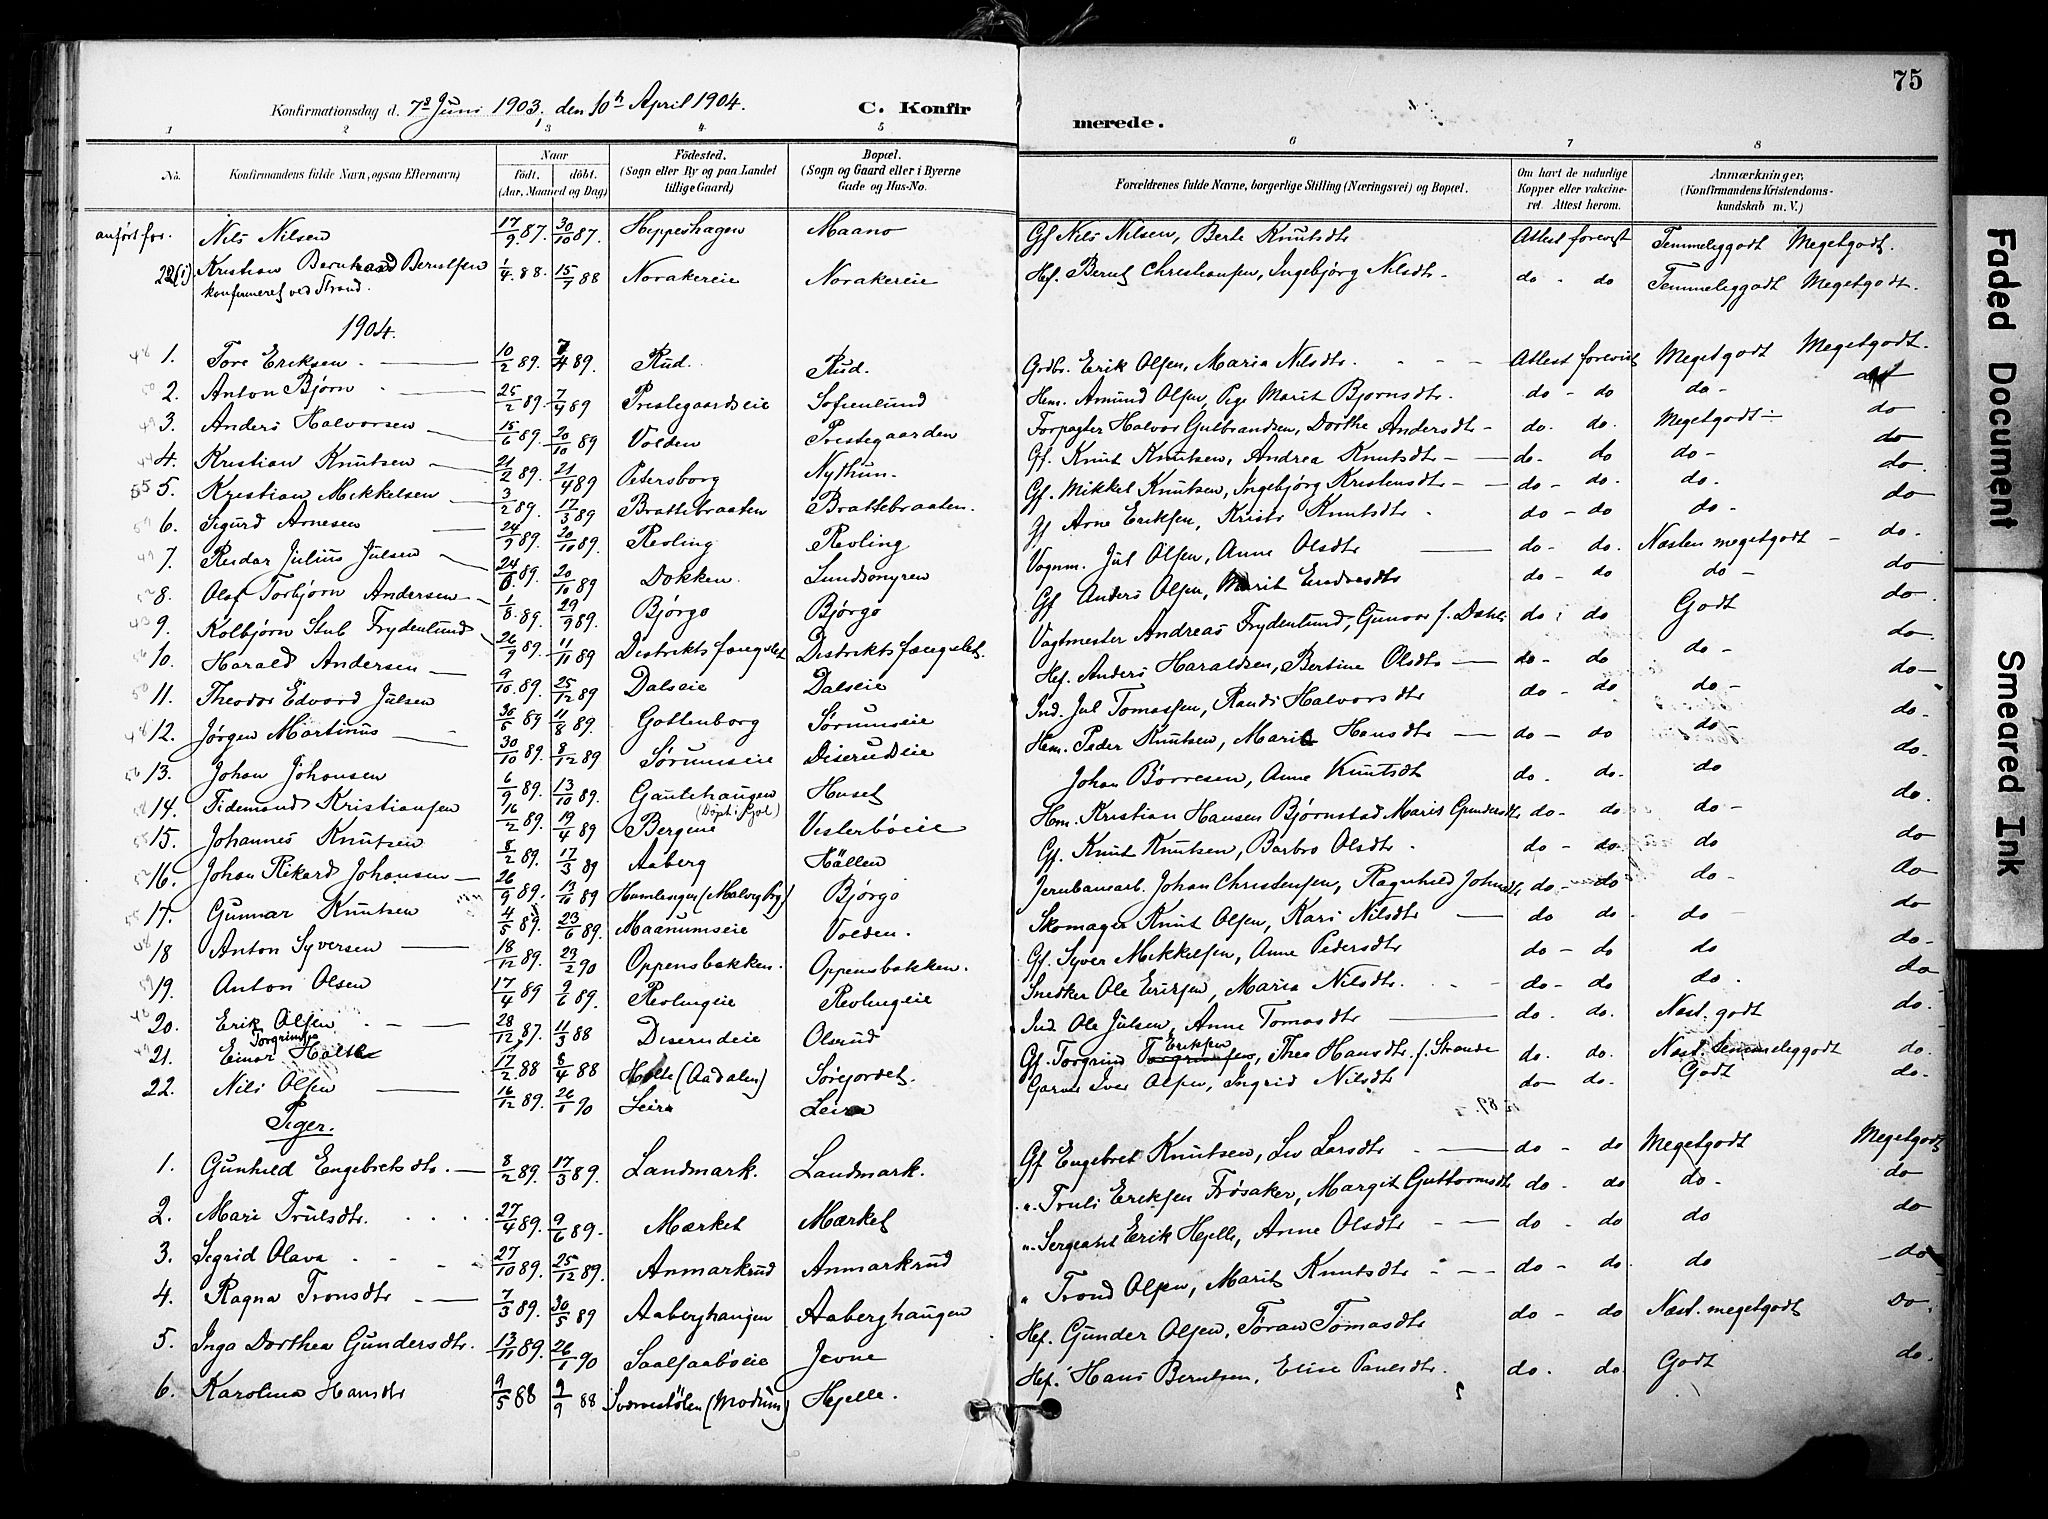 75
Konfirmationsdag d. 7de Juni 1903, den 10h April 1904. C. Konfirmerede.
1 2 3 4 5 6 7 8
No. Konfirmandens fulde Navn, ogsaa Efternavn) Naar født. døbt. (Aar, Maaned og Dag) Fødested. (Sogn eller By og paa Landet tillige Gaard) Bopæl. (Sogn og Gaard eller i Byerne Gade og Hus-No. Forældrenes fulde Navne, borgerlige Stilling (Næringsvei) og Bopæl. Om havt de naturlige Kopper eller vaccineret. Attest herom. Anmærkninger, (Konfirmandens Kristendomskundskab m. V.)
anført for. Nils Nilsen 17/9 87. 30/10 87. Heppeshagen Maano Gf Nils Nilsen, Berte Knutsdtr Attest forevist Temmeliggodt Megetgodt.
22(i) Kristian Bernhard Berntsen 1/4 88. 15/7 88 Norakereie Norakereie Hf. Bernt Christiansen, Ingebjørg Nilsdtr - do - do Temmeliggodt Megetgodt.
konfirmeret ved Strand.
1904.
1. Tore Eriksen 10/2 89. 7/4 89. Rud. Rud. Grdbr. Erik Olsen, Maria Nilsdtr. Attest forevist Megetgodt Megetgodt.
2. Anton Bjørn 25/2 89. 7/4 89 Prestegaardseie Sofienlund Hem. Amund Olsen, Pige Marit Bjørnsdtr. do - do do - do
3. Anders Halvorsen 15/6 89. 20/10 89 Volden Prestegaarden Forpagter Halvor Gulbrandsen, Dorthe Andersdtr - do. do. Megetgodt - do
4. Kristian Knutsen 21/2 89. 21/4 89 Petersborg Nythun. Gf. Knut Knutsen, Andrea Knutsdtr - do. do do - do
5. Kristian Mikkelsen 3/2 89. 17/3 89 Brattebraaten Brattebraaten. Gf. Mikkel Knutsen, Ingebjørg Kristensdtr - do - do. do. do.
6. Sigurd Arnesen 24/9 89. 20/10 89. Revling Revling Gf Arne Eriksen, Kristi Knutsdtr do - do do - do
7. Reidar Julius Julsen 24/8 89. 20/10 89 Dokken Lundsmyren Vognm. Jul Olsen, Anne Olsdtr do - do. Næsten megetgodt - do.
8. Olaf Torbjørn Andersen 1/8 89. 29/9 89. Bjørgo Bjørgo Gf Anders Olsen, Marit Endresdtr do - do do - do
9. Kolbjørn Stub Frydenlund 26/9 89. 11/11 89 Distriktsfængslet Distriktsfængslet. Vagtmester Andreas Frydenlund, Gunvor f. Dahl. do : do Godt do.
10. Harald Andersen 9/10 89. 25/12 89 Dalseie Dalseie Hf. Anders Haraldsen, Bertine Olsdtr do - do do - do.
11. Theodor Edvard Julsen 30/5 89 11/8 89. Gottenborg Sørumseie Ind. Jul Tomassen, Randi Halvorsdtr do - do do - do -
12. Jørgen Martinus 30/10 89. 8/12 89 Sørumseie Diserudeie Hem. Peder Knutsen, Marie Hansdtr do - do do - do.
13. Johan Johansen 6/9 89. 13/10 89. Gautehaugen Huset Johan Børresen, Anne Knutsdt do. do. do do.
14. Tidemand Kristiansen 16/2 89. 19/4 89 (Døpt i Gol) Bergene Vesterbøeie Hem. Kristian Hansen Bjørnstad Marit Gundersdtr do - do do - do.
15. Johannes Knutsen 8/2 89. 17/3 89 Aaberg Hællen Gf. Knut Knutsen, Barbro Olsdtr do - do do do
16. Johan Rikard Johansen 26/9 89. 13/10 89 Bjørgo Jernbanearb. Johan Christensen, Ragnhild Johnsdtr do - do do - do
17. Gunnar Knutsen 4/5 89. 23/6 89. Maanumseie Volden. Skomager Knut Olsen, Kari Nilsdtr do do - do do
18 Anton Syversen 18/12 89. 23/2 90 Oppensbakken. Oppensbakken. Gf. Syver Mikkelsen, Anne Pedersdtr do - do do do -
19. Anton Olsen 17/4 89 9/6 89. Revlingeie Revlingeie Snedker Ole Eriksen, Maria Nilsdtr. do - do do. do
20. Erik Olsen 28/12 87. 11/3 88 Diserudeie Olsrud Ind. Ole Julsen, Anne Tomasdtr do. do. Næst. godt do.
21. Einar Torgrimsen Holte 17/2 88 8/4 88 Holte (Aadalen) Sørejordet. Gf. Torgrim Eriksen, Thea Hansdtr. f. Strande do. do. Næst. temmeliggodt do.
22. Nils Olsen 16/12 89. 26/1 90 Leira Leira Garver Iver Olsen, Ingrid Nilsdtr do do. Godt do.
Piger.
1. Gunhild Engebretsdtr. 8/2 89. 17/3 89. Landmark. Landmark. Gf Engebret Knutsen, Liv Larsdtr do - do Megetgodt Megetgodt
2. Mari Trulsdtr. 27/4 89. 9/6 89. Mærket Mærket " Truls Eriksen Frøsaker, Margit Guttormsdtr do. do do. do
3. Sigrid Olava 27/10 89. 25/12 89. Anmarkrud Anmarkrud " Sergeant Erik Hjelle, Anne Olsdtr do - do do do
4. Ragna Tronsdtr 7/3 89. 30/5 89 Aaberghaugen Aaberghaugen " Trond Olsen, Marit Knutsdtr do - do. do - do
5. Inga Dorthea Gundersdtr. 13/11 89. 26/1 90 Saalsaabøeie Jevne Hf. Gunder Olsen, Tøran Tomasdtr do - do Næst. megetgodt do.
6. Karolina Hansdtr 9/5 88 9/9 88 Sværvestølen (Modum) Hjelle. Hf. Hans Berntsen, Elise Paulsdtr. do. do Godt do.
Faded Document
Smeared Ink